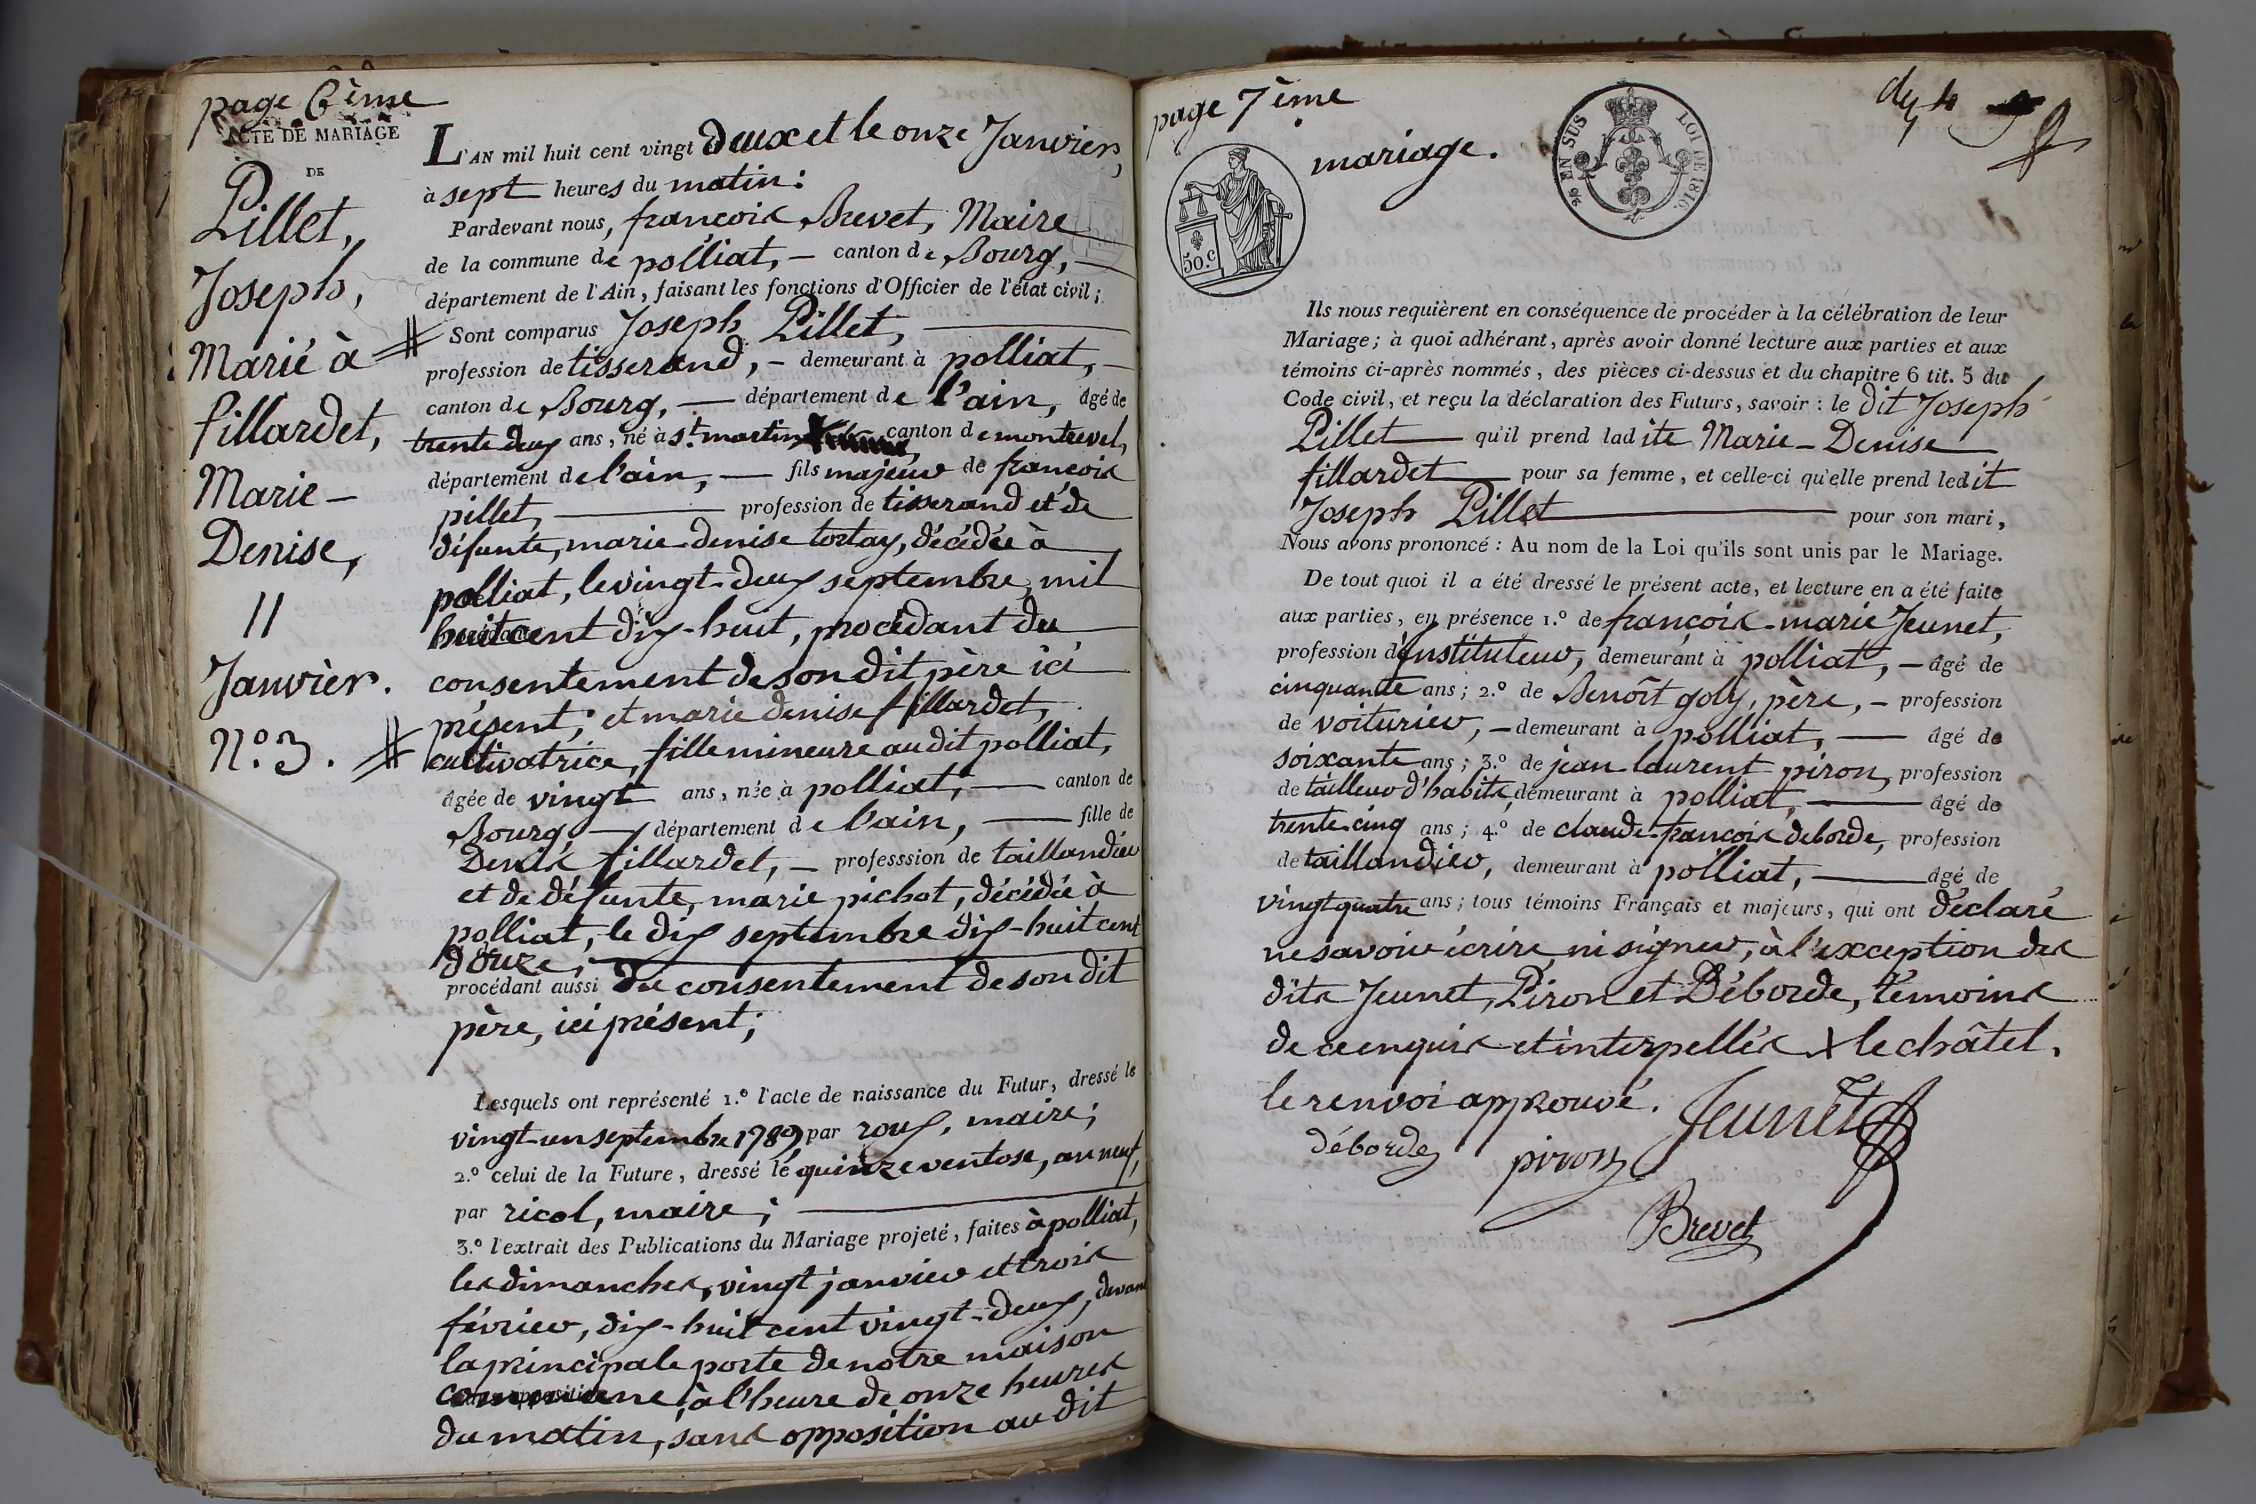 page 6ème
ACTE DE MARIAGE
DE
Pillet,
Joseph,
Marié à
fillardet,
Marie-
Denise,
11
Janvier.
N.o 3.
L'AN mil huit cent vingt deux et le onze Janvier,
à sept heures du matin:
Pardevant nous, françois Brevet, Maire
de la commune de polliat, – canton de Bourg, –
département de l'Ain, faisant les fonctions d'Officier de l'état civil;
Sont comparus Joseph Pillet,
profession de tisserand, – demeurant à polliat, –
canton de Bourg, – département de l'ain, âgé de
trente deux ans, né à st. martin canton de montrevel,
département de l'ain, – fils majeur de françois
pillet, profession de tisserand et de
défunte, marie-denise tortay, décédée à
polliat, le vingt-deux septembre, mil
huit cent dix-huit, procédant du
consentement de son dit père ici
présent; et marie denise fillardet,
cultivatrice, fille mineure au dit polliat,
âgée de vingt ans, née à polliat, – canton de
Bourg, – département de l'ain, – fille de
Denis fillardet, – professsion de taillandier
et de défunte, marie pichot, décédée à
polliat, le dix septembre dix-huit cent
douze,
procédant aussi du consentement de son dit
père, ici présent;
Lesquels ont représenté 1.° l'acte de naissance du Futur, dressé le
vingt-un septembre 1789, par roux, maire;
2.° celui de la Future, dressé le quinze ventose, an neuf,
par ricol, maire;
3.° l'extrait des Publications du Mariage projeté, faites à polliat,
les dimanches, vingt janvier et trois
février, dix-huit cent vingt-deux, devant
la principale porte de notre maison
commune, à l'heure de onze heures
du matin, sans opposition au dit
page 7ème
mariage.
50.c
EN SUS
LOI DE 1816.
Ils nous requièrent en conséquence de procéder à la célébration de leur
Mariage; à quoi adhérant, après avoir donné lecture aux parties et aux
témoins ci-après nommés, des pièces ci-dessus et du chapitre 6 tit. 5 du
Code civil, et reçu la déclaration des Futurs, savoir: le dit Joseph
Pillet – qu'il prend ladite Marie-Denise
fillardet – pour sa femme, et celle-ci qu'elle prend ledit
Joseph Pillet – pour son mari,
Nous avons prononcé: Au nom de la Loi qu'ils sont unis par le Mariage.
De tout quoi il a été dressé le présent acte, et lecture en a été faite
aux parties, en présence 1.° de françois-marie Jeunet,
profession d'Instituteur, demeurant à polliat, – âgé de
cinquante ans; 2.° de Benoît goly, père, – profession
de voiturier, – demeurant à polliat, – âgé de
soixante ans; 3.° de jean-laurent piron, profession
de tailleur d'habits, demeurant à polliat, – âgé de
trente-cinq ans; 4.° de claude-françois deborde, profession
de taillandier, demeurant à polliat, – âgé de
vingt quatre ans; tous témoins Français et majeurs, qui ont déclaré
ne savoir écrire, ni signer, à l'exception des
dits Jeunet, Piron et Déborde, témoins
de ce enquis et interpellés X le châtel.
le renvoi approuvé. Jeunet
déborde piron
Brevet